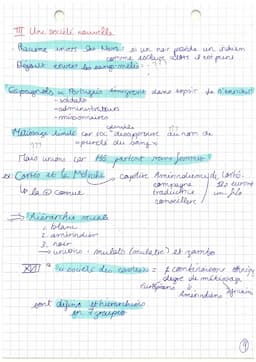 III Une société nouvelle
- Racisme envers les Noirs : si un noir possède un indien
comme esclave alors il est puni
Dégout envers les sang-mêlés : ???
Espagnols et Portugais émigrent dans espoir de s'enrichir
- soldats
- administrateurs
- missionnaires
Métissage limité car soc désapprouve au nom de
???
"pureté du sang"
Mais unions car
partent sans femmes
ex: Cortés et la Malinche → captive Amérindienne de Cortés.
compagne
traductrice
conseillère
Ils eurent
un fils
↳ la + connue
→ Hiérarchie sociale
1. blanc
2. amérindien
3. noir
→ unions = mulats (mulâtre) et zambo
XVIII
"la société des castes" =
combinaisons
degré de métissage
Européens
Amérindiens
africains
sont définis et hiérarchisés
en
groupes